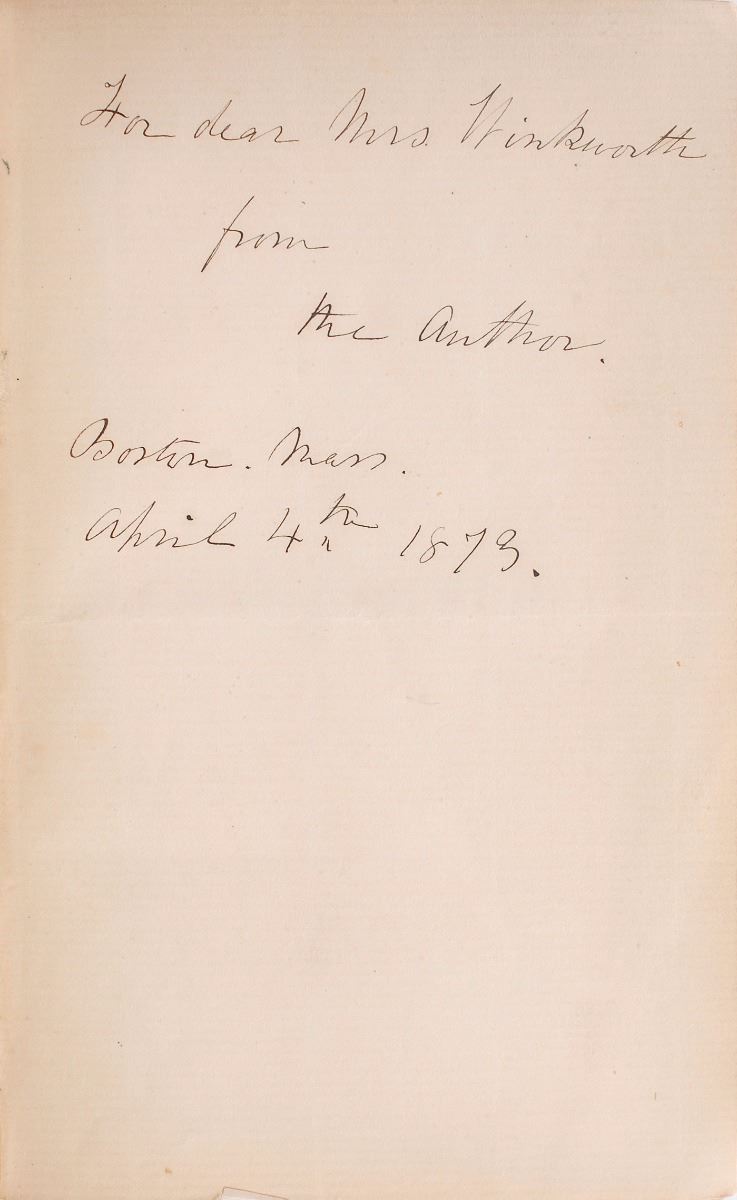 For dear Mrs. Winkworth
from
the Author.
Boston. Mass.
April 4th 1873.